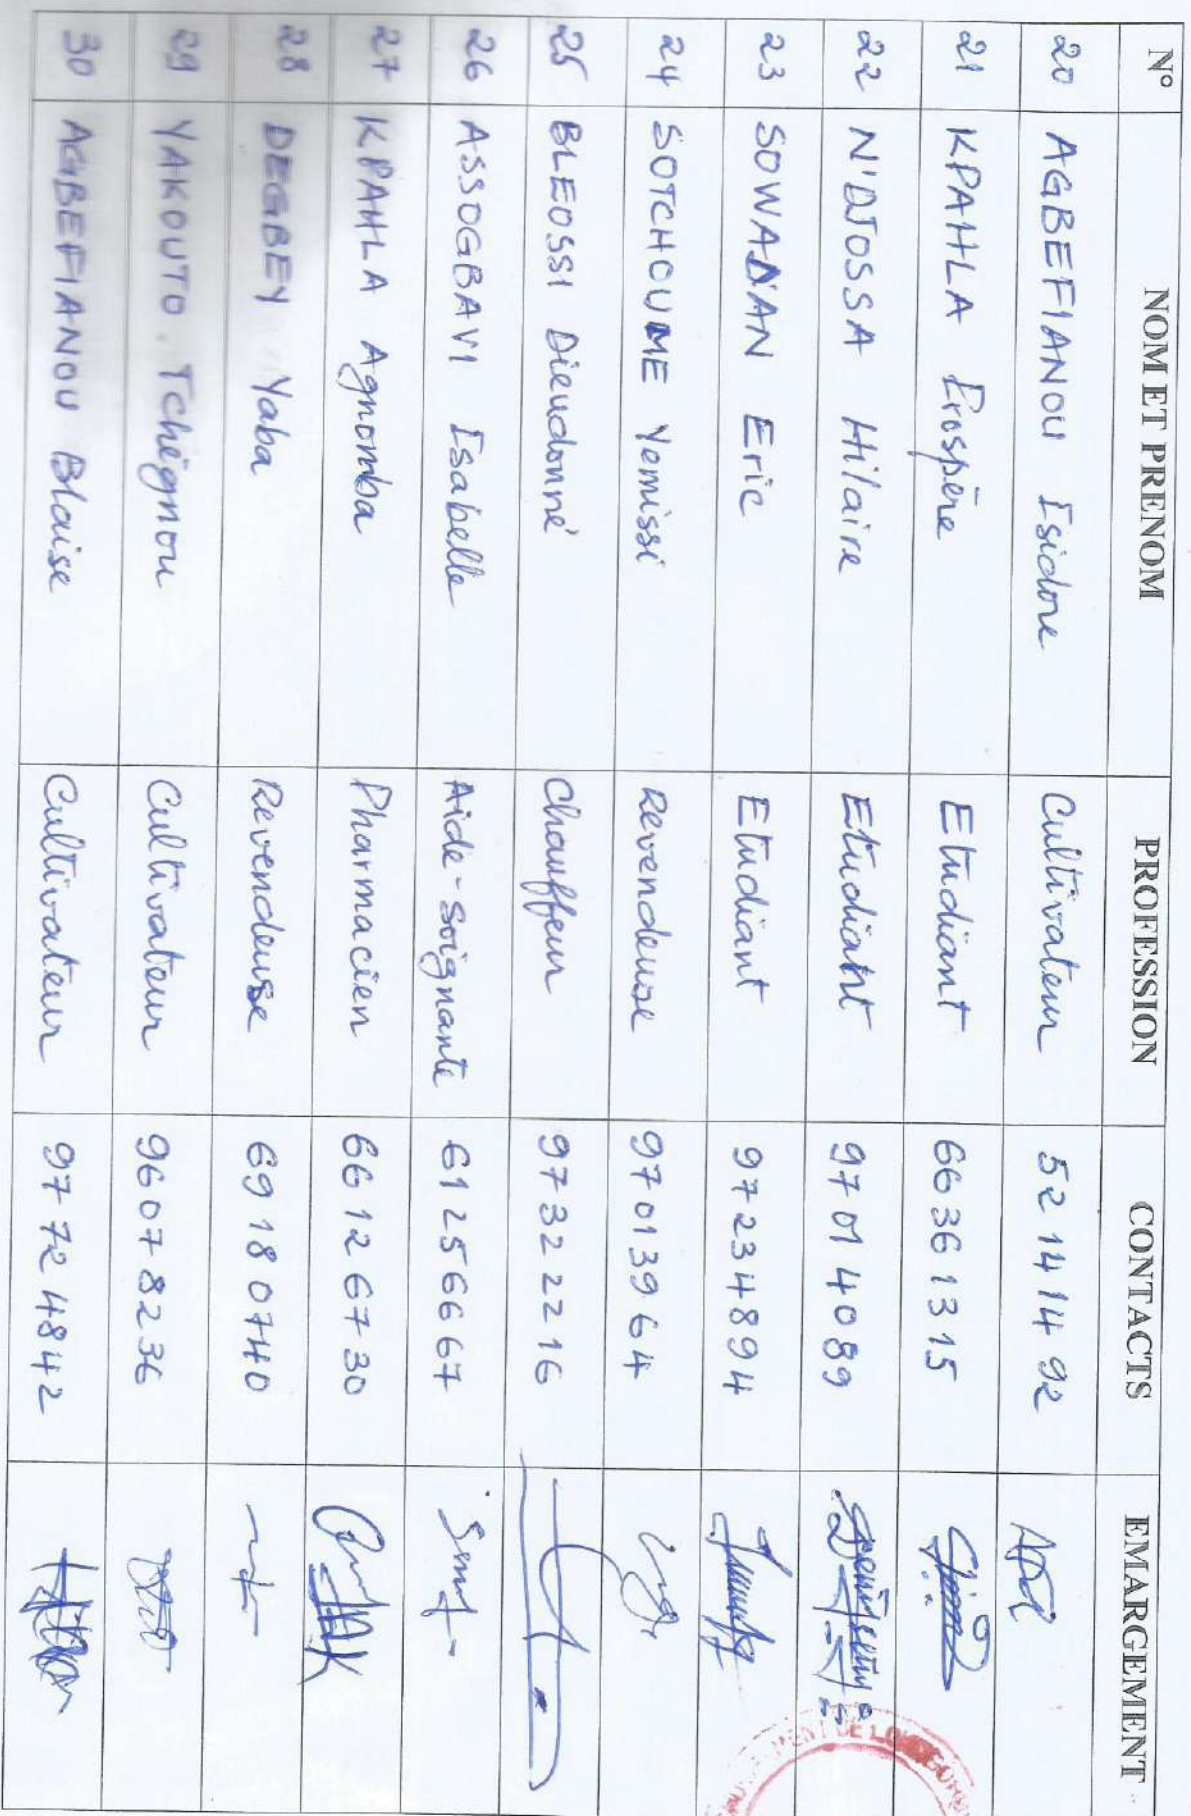 N° NOM ET PRENOM PROFESSION CONTACTS EMARGEMENT
20 AGBEFIANOU Isidore Cultivateur 52 14 14 92
21 KPAHLA Prospère Etudiant 66 36 13 15
22 N'DJOSSA Hilaire Etudiant 97 01 40 89
23 SOWADAN Eric Etudiant 97 23 48 94
24 SOTCHOUME Yemissi Revendeuse 97 01 39 64
25 BLEOSSI Dieudonné Chauffeur 97 32 22 16
26 ASSOGBAVI Isabelle Aide-Soignante 61 25 66 67
27 KPAHLA Agnomba Pharmacien 66 12 67 30
28 DEGBEY Yaba Revendeuse 69 18 07 40
29 YAKOUTO Tchégnou Cultivateur 96 07 82 36
30 AGBEFIANOU Blaise Cultivateur 97 72 48 42